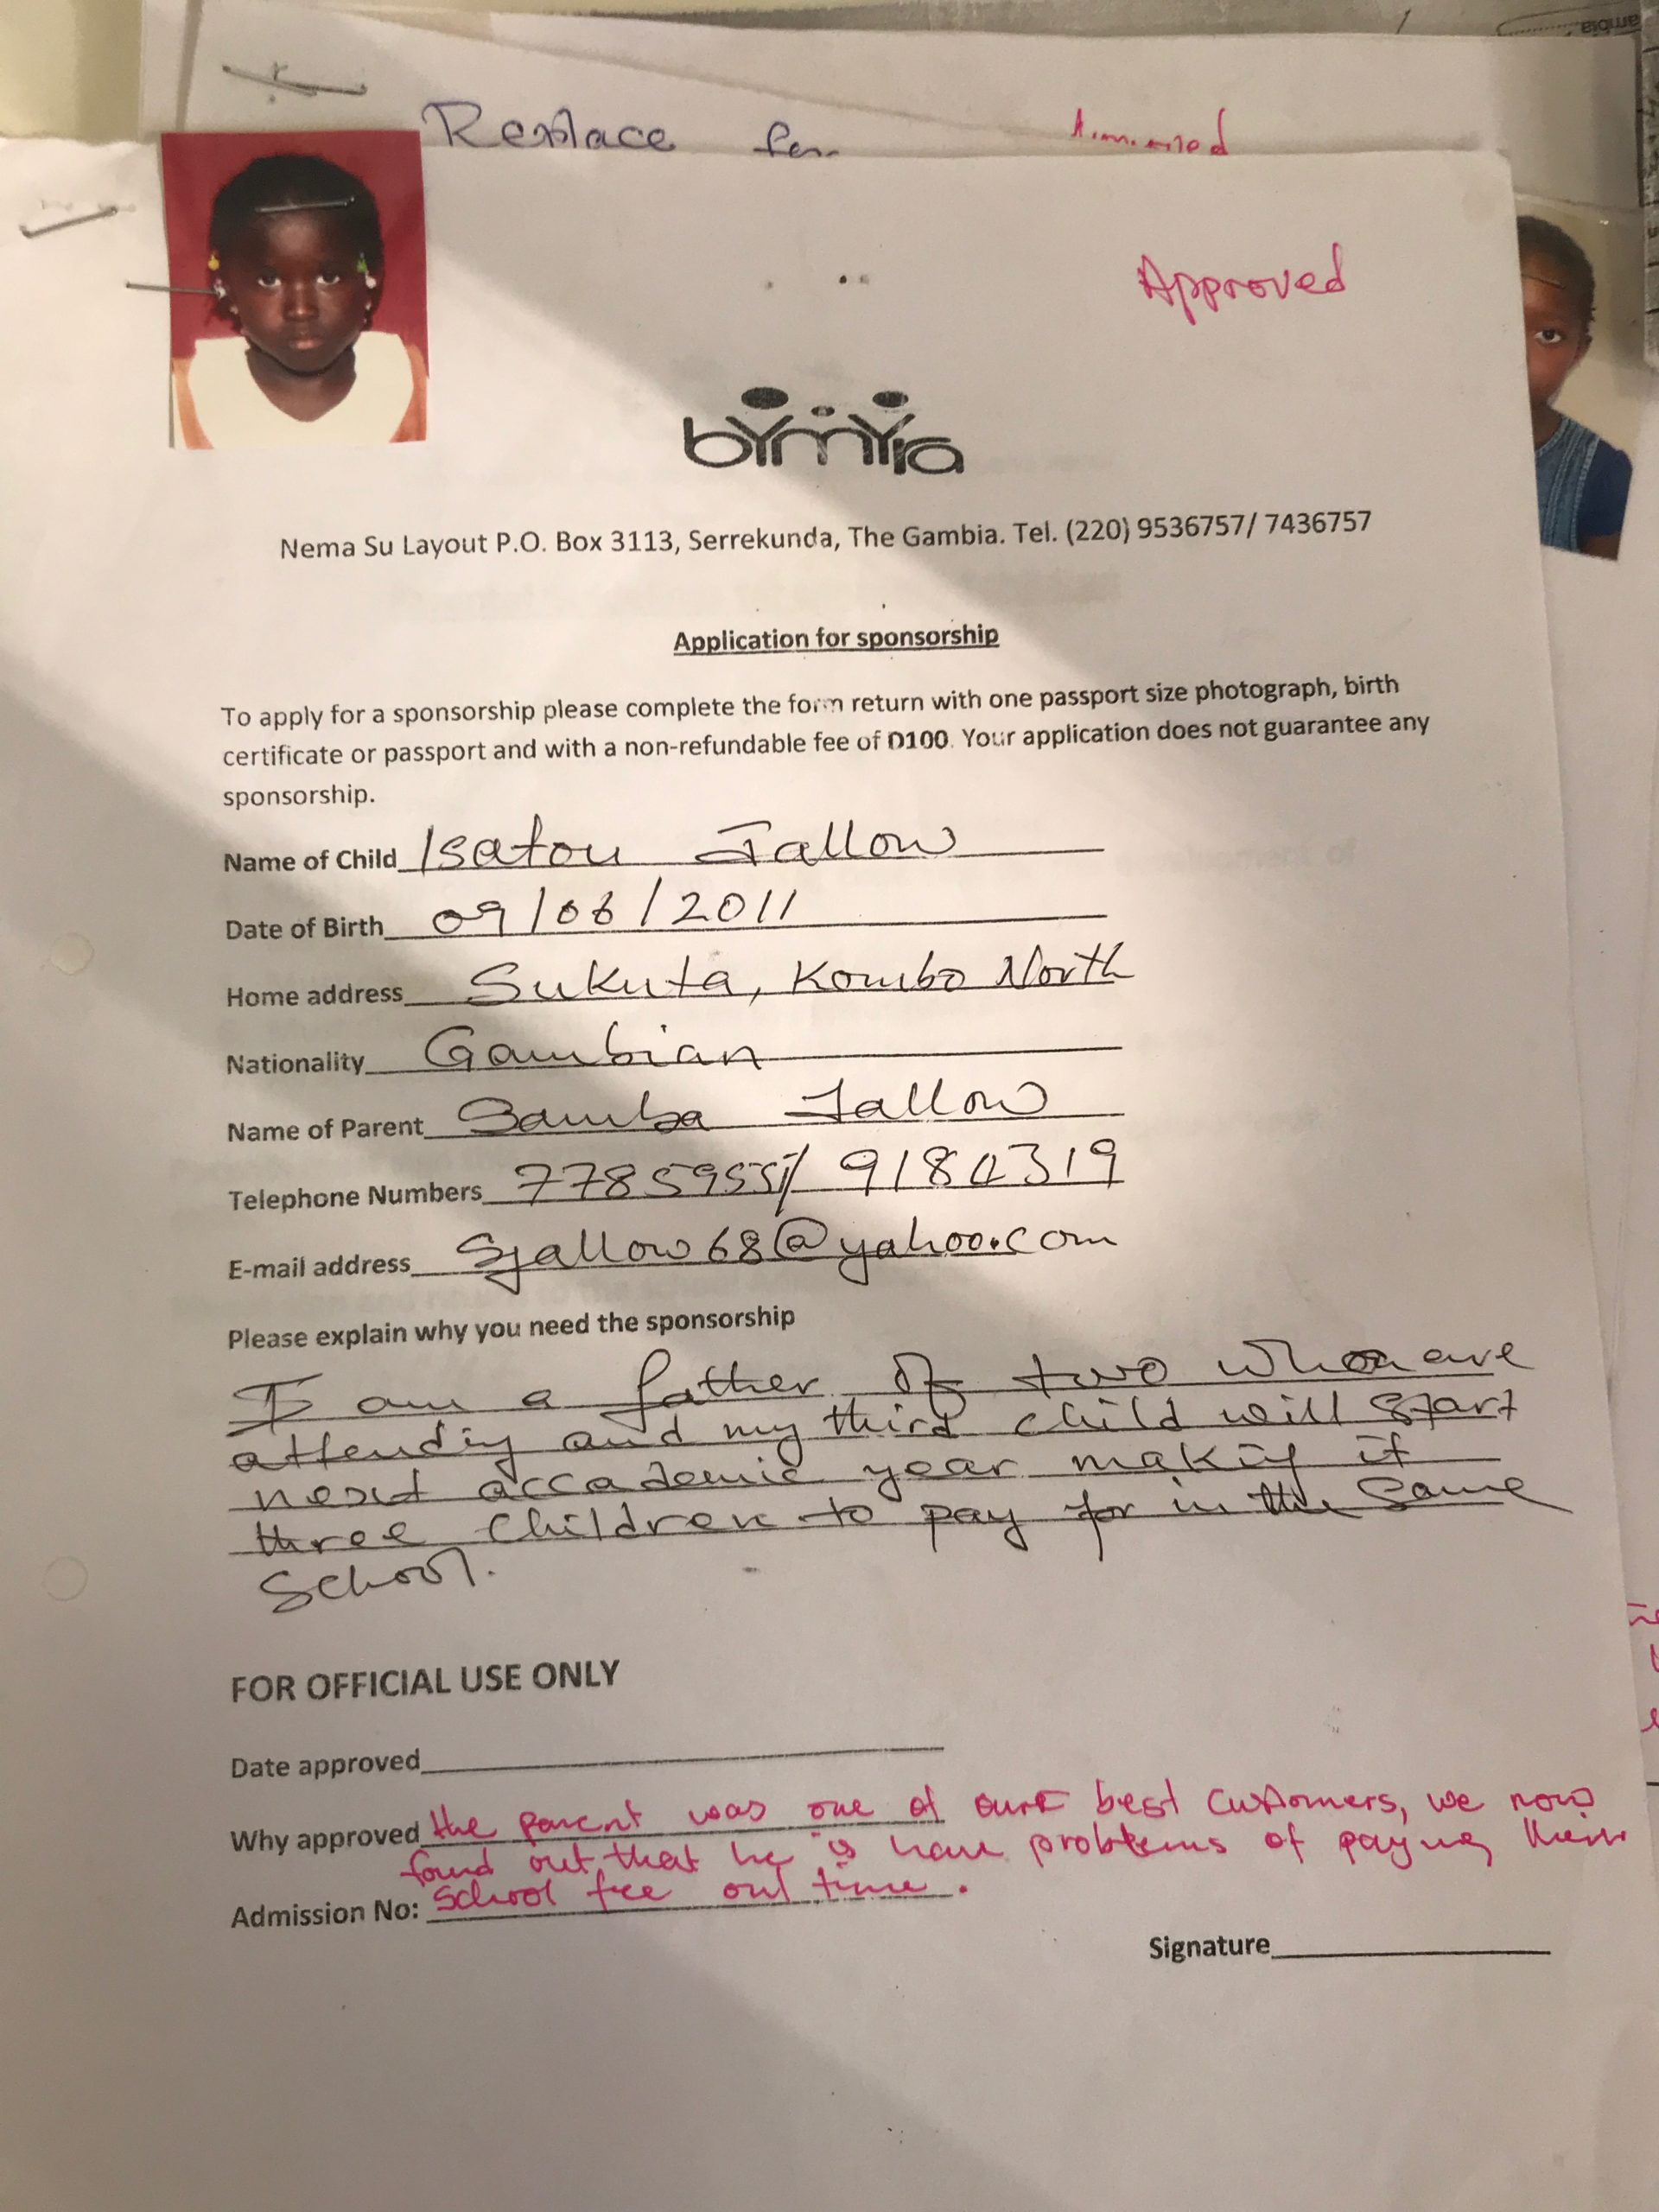 Replace for
Approved
bymyra
Nema Su Layout P.O. Box 3113, Serrekunda, The Gambia. Tel. (220) 9536757/ 7436757
Application for sponsorship
To apply for a sponsorship please complete the form return with one passport size photograph, birth
certificate or passport and with a non-refundable fee of D100. Your application does not guarantee any
sponsorship.
Name of Child Isatou Jallow
Date of Birth 09/06/2011
Home address Sukuta, Kombo North
Nationality Gambian
Name of Parent Samba Jallow
Telephone Numbers 7785955/ 9184319
E-mail address Sjallow68@yahoo.com
Please explain why you need the sponsorship
I am a father of two whom are
attending and my third child will start
next accademic year making it
three children to pay for in the same
School.
FOR OFFICIAL USE ONLY
Date approved
Why approved the parent was one of our best customers, we now
found out that he is have problems of paying their
Admission No: school fee out time.
Signature